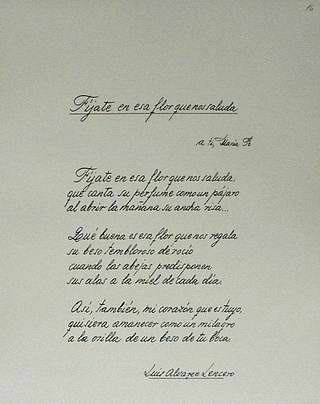 Fíjate en esa flor que nos saluda
a ti, María
Fíjate en esa flor que nos saluda,
que canta su perfume como un pájaro
al abrir la mañana su ancha risa...
¡Qué buena es esa flor que nos regala
su beso tembloroso de rocío
cuando las abejas predisponen
sus alas a la miel de cada día.
Así, también, mi corazón que es tuyo,
quisiera amanecer como un milagro
a la orilla de un beso de tu boca
Luis Alvarez Lencero